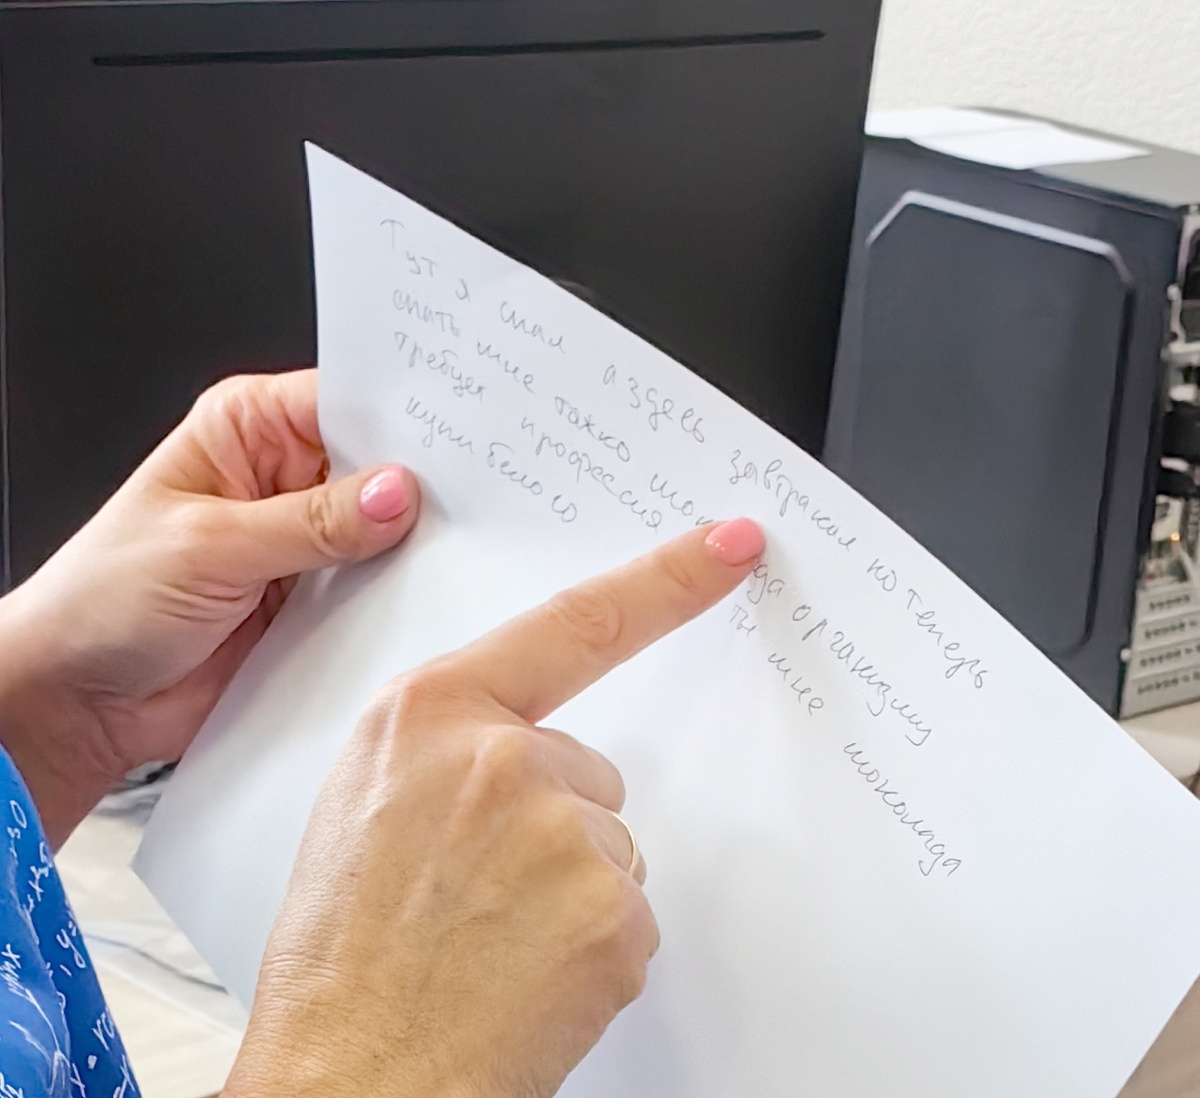 Тут я спал а здесь завтракал но теперь
спать мне тажко да организму
требует профессия
купи белого ты мне шоколада